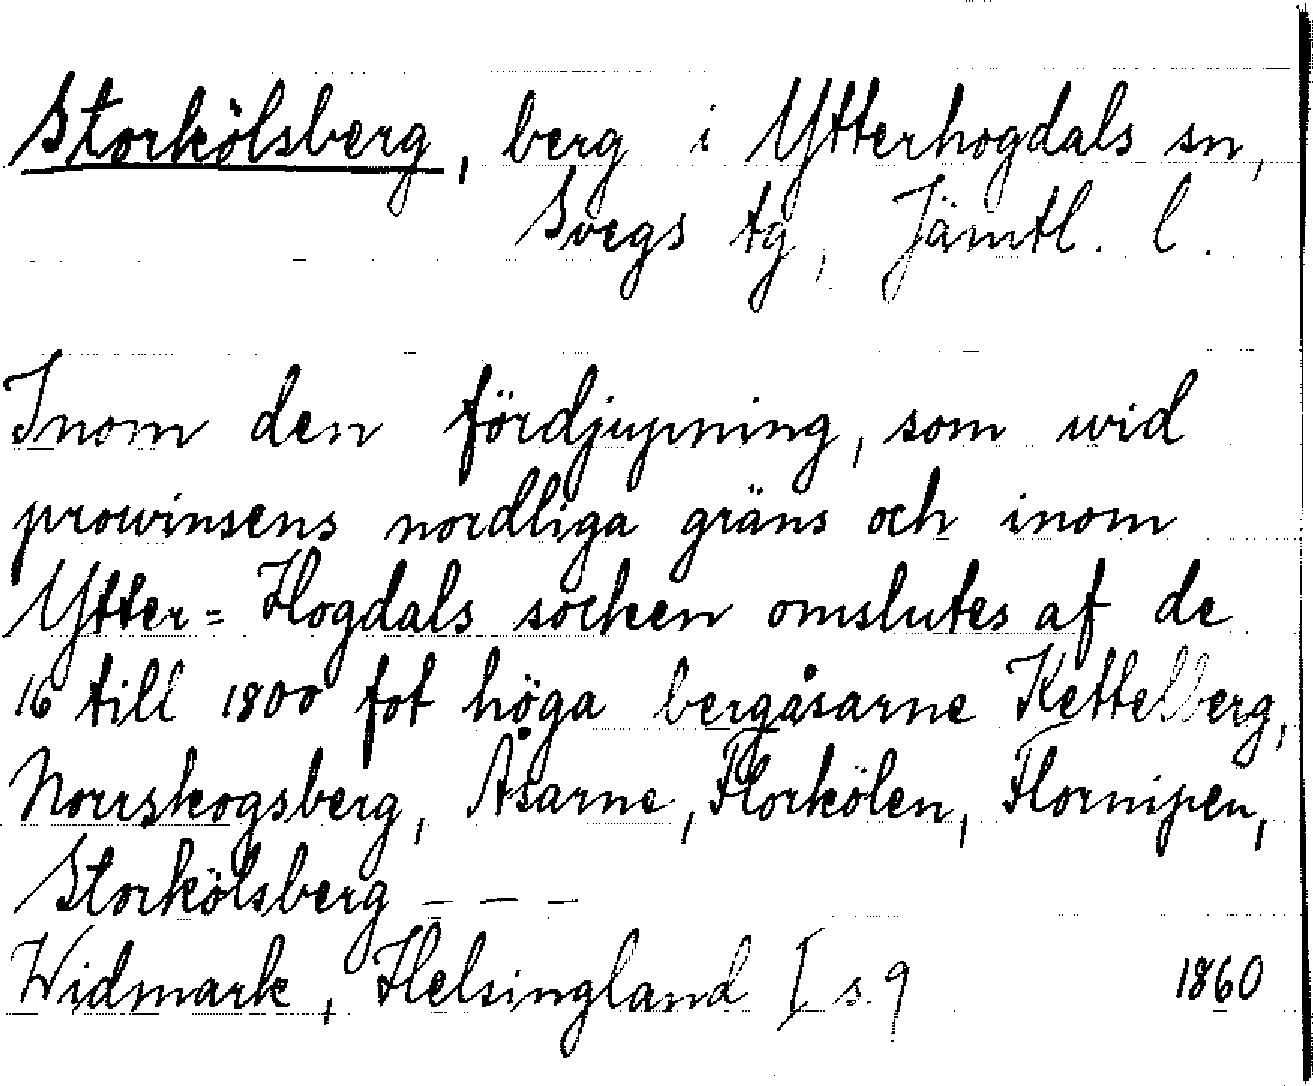 Storkölsberg, berg i Ytterhogdals sn,
Svegs tg, Jämtl. l.
Inom den fördjupning, som wid
prowinsens nordliga gräns och inom
Ytter=Hogdals socken omslutes af de
16 till 1800 fot höga bergåsarne Kettelberg,
Norrskogsberg, Åsarne, Florkölen, Flornipen,
Storkölsberg - - -
Widmark, Helsingland I s. 9 1860